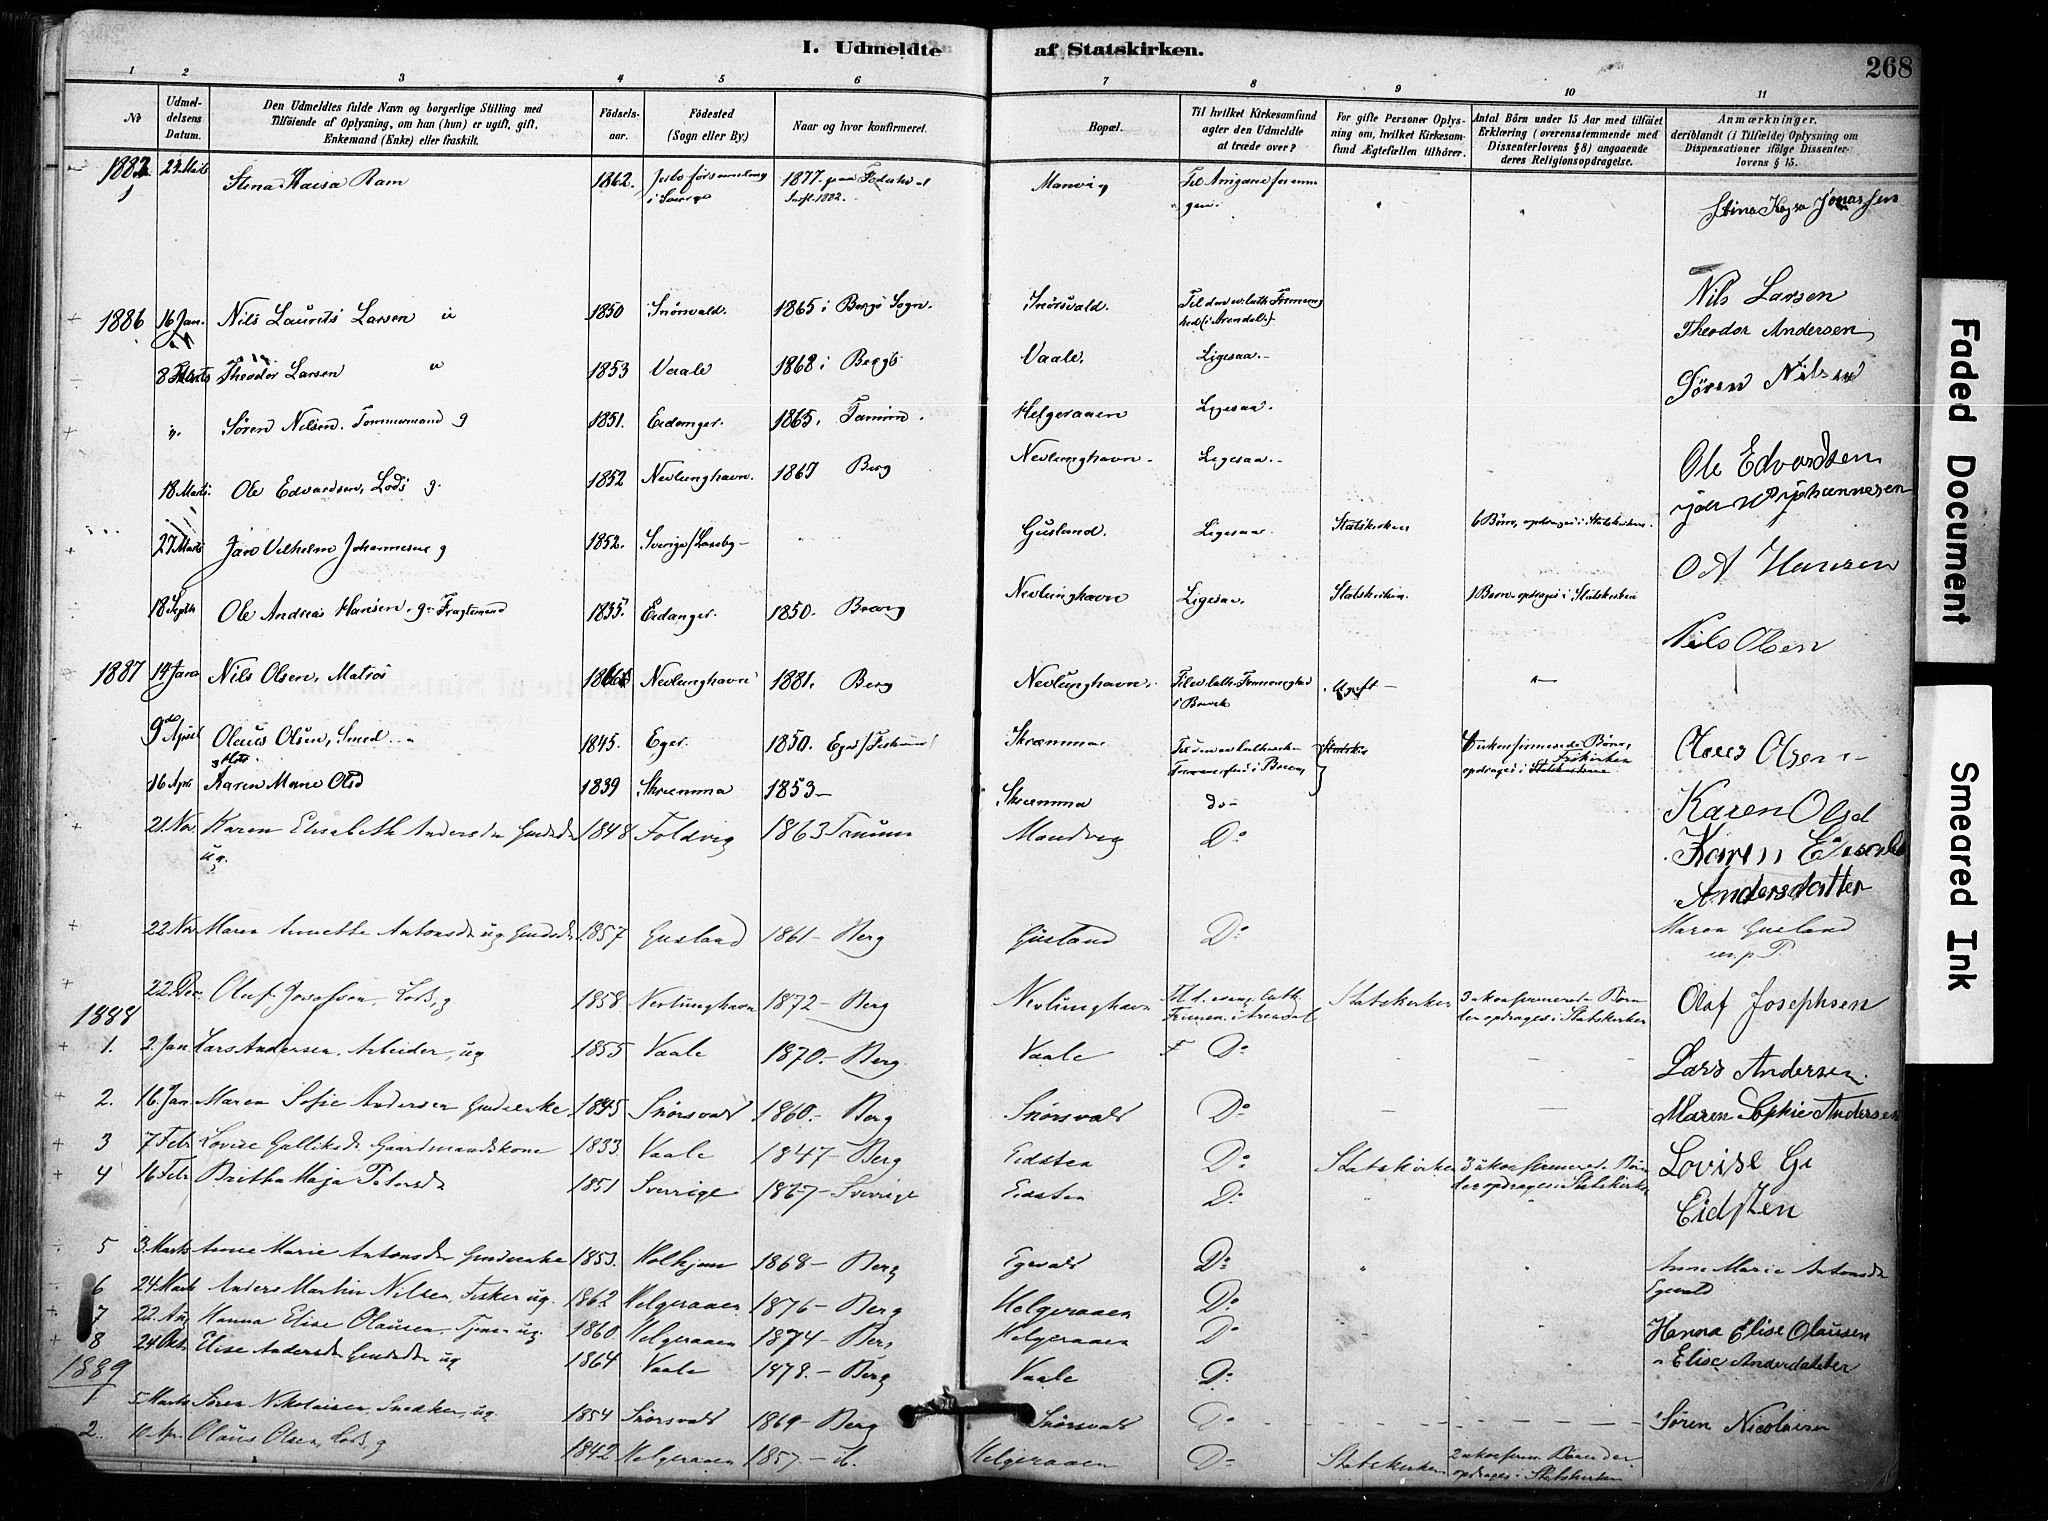 I. Udmeldte af Statskirken.
268
1 2 3 4 5 6 7 8 9 10 11
No
Udmel-
delsens
Datum.
Den Udmeldtes fulde Navn og borgerlige Stilling med
Tilföiende af Oplysning, om han (hun) er ugift, gift,
Enkemand (Enke) eller fraskilt.
Födsels-
aar.
Födested
(Sogn eller By.)
Naar og hvor konfirmeret.
Bopæl.
Til hvilket Kirkesamfund
agter den Udmeldte
at træde over?
For gifte Personer Oplys-
ning om, hvilket Kirkesam-
fund Ægtefællen tilhörer.
Antal Börn under 15 Aar med tilföiet
Erklæring (overensstemmende med
Dissenterlovens § 8) angaaende
deres Religionsopdragelse.
Anmærkninger,
deriblandt (i Tilfælde) Oplysning om
Dispensationer ifölge Dissenter-
lovens § 15.
1882 Stina Kaisa Ram 1862. i Sverige 1877. Manvig Stina Kajsa Jonassen
1886 16 Jan. Nils Laurits Larsen u 1850 Snörsvald. 1865 i Bergs Sogn. Snörsvald. Nils Larsen
8 Marts Theodor Larsen u 1853 Vaale 1868 i Bergs Vaale, Ligesaa.- Theodor Andersen
Søren Nilsen. Tømmermand g 1851. Eidanger. 1865. Helgeraaen Ligesaa. Søren Nilsen
18 Marts. Ole Edvardsen, Lods g. 1852 Nevlunghavn. 1867 Berg Nevlunghavn. Ligesaa.- Ole Edvardsen
27 Marts Jan Vilhelm Johannesen g 1852. Sverige Gusland. Ligesaa Statskirken 6 Börn, opdrages i Statskirken.
18 Septb Ole Andreas Hansen, g. Fragtemand 1835. Eidanger. 1850. Nevlunghavn Ligesaa. Statskirken. 1 Barn opdrages i Statskirken O A Hansen
1887 14 Jan Nils Olsen, Matros Nevlunghavn 1881. Berg Nevlunghavn. Ugift - Nils Olsen
9de April Olaus Olsen, Smed 1845. Eger. 1850. Skræmma Olaus Olsen
16 Apr Karen Marie Olsd 1839 Skræmma 1853- Skræmma do- Karen Olsd
21. Nov. Karen Elisabeth Andersdr 1848 Foldvig 1863 Tanum Mandvig Do Karen
ug. Andersdatter
22 Nov Maren Annette Antonsdr ug 1857 Gusland 1861- Berg Gusland Do Maren Gusland
m. p. P.
22. Dec. Oluf Josefsen, Lods, g 1858- Nevlunghavn 1872- Berg Nevlunghavn Statskirken 3 ukonfirmerede Börn Olaf Josephsen
der opdrages i Statskirken
1888
1. 2. Jan Lars Andersen. Arbeider, ug 1855 Vaale 1870.- Berg. Vaale Do Lars Andersen.
2. 16. Jan Maren Sofie Andersen 1845 Snörsvald 1860.- Berg Snörsvald Do Maren Sophie Andersen
3 7 Febr Lovise Gulliksdr Gaardmandskone 1833. Vaale 1847- Berg Eidsten Do Statskirken 3 ukonfirmerede Börn Lovise G
der opdrages i Statskirken
4 16 Febr Britha Maja Petersdr 1851 Sverrige 1867- Sverrige Eidsten Do Eidsten
5 3. Marts Anne Marie Antonsdr 1853. 1868- Berg Egevald Do Anne Marie Antonsdr
Egevald
6 24 Marts Anders Martin Nilsen, Fisker ug. 1862 Helgeraaen 1876- Berg Helgeraaen Do
7 22. Aug Hanna Elise Olausen. Tjener ug. 1860. Helgeraaen 1874- Berg Helgeraaen Do Hanna Elise Olausen
8 24 Okt. Elise Andersdr ug 1864 Vaale 1878.- Berg Vaale Do Elise Anderdatter
1889
1 5 Marts Søren Nikolaisen, Snedker, ug. 1854 Snörsvald 1869- Berg Snörsvald Do Søren Nicolaisen
2. 10. Apr. Olaus Olsen, Lods, g 1842 Helgeraaen 1857- Helgeraaen Do Statskirken
opdrages i Statskirken
Faded Document
Smeared Ink